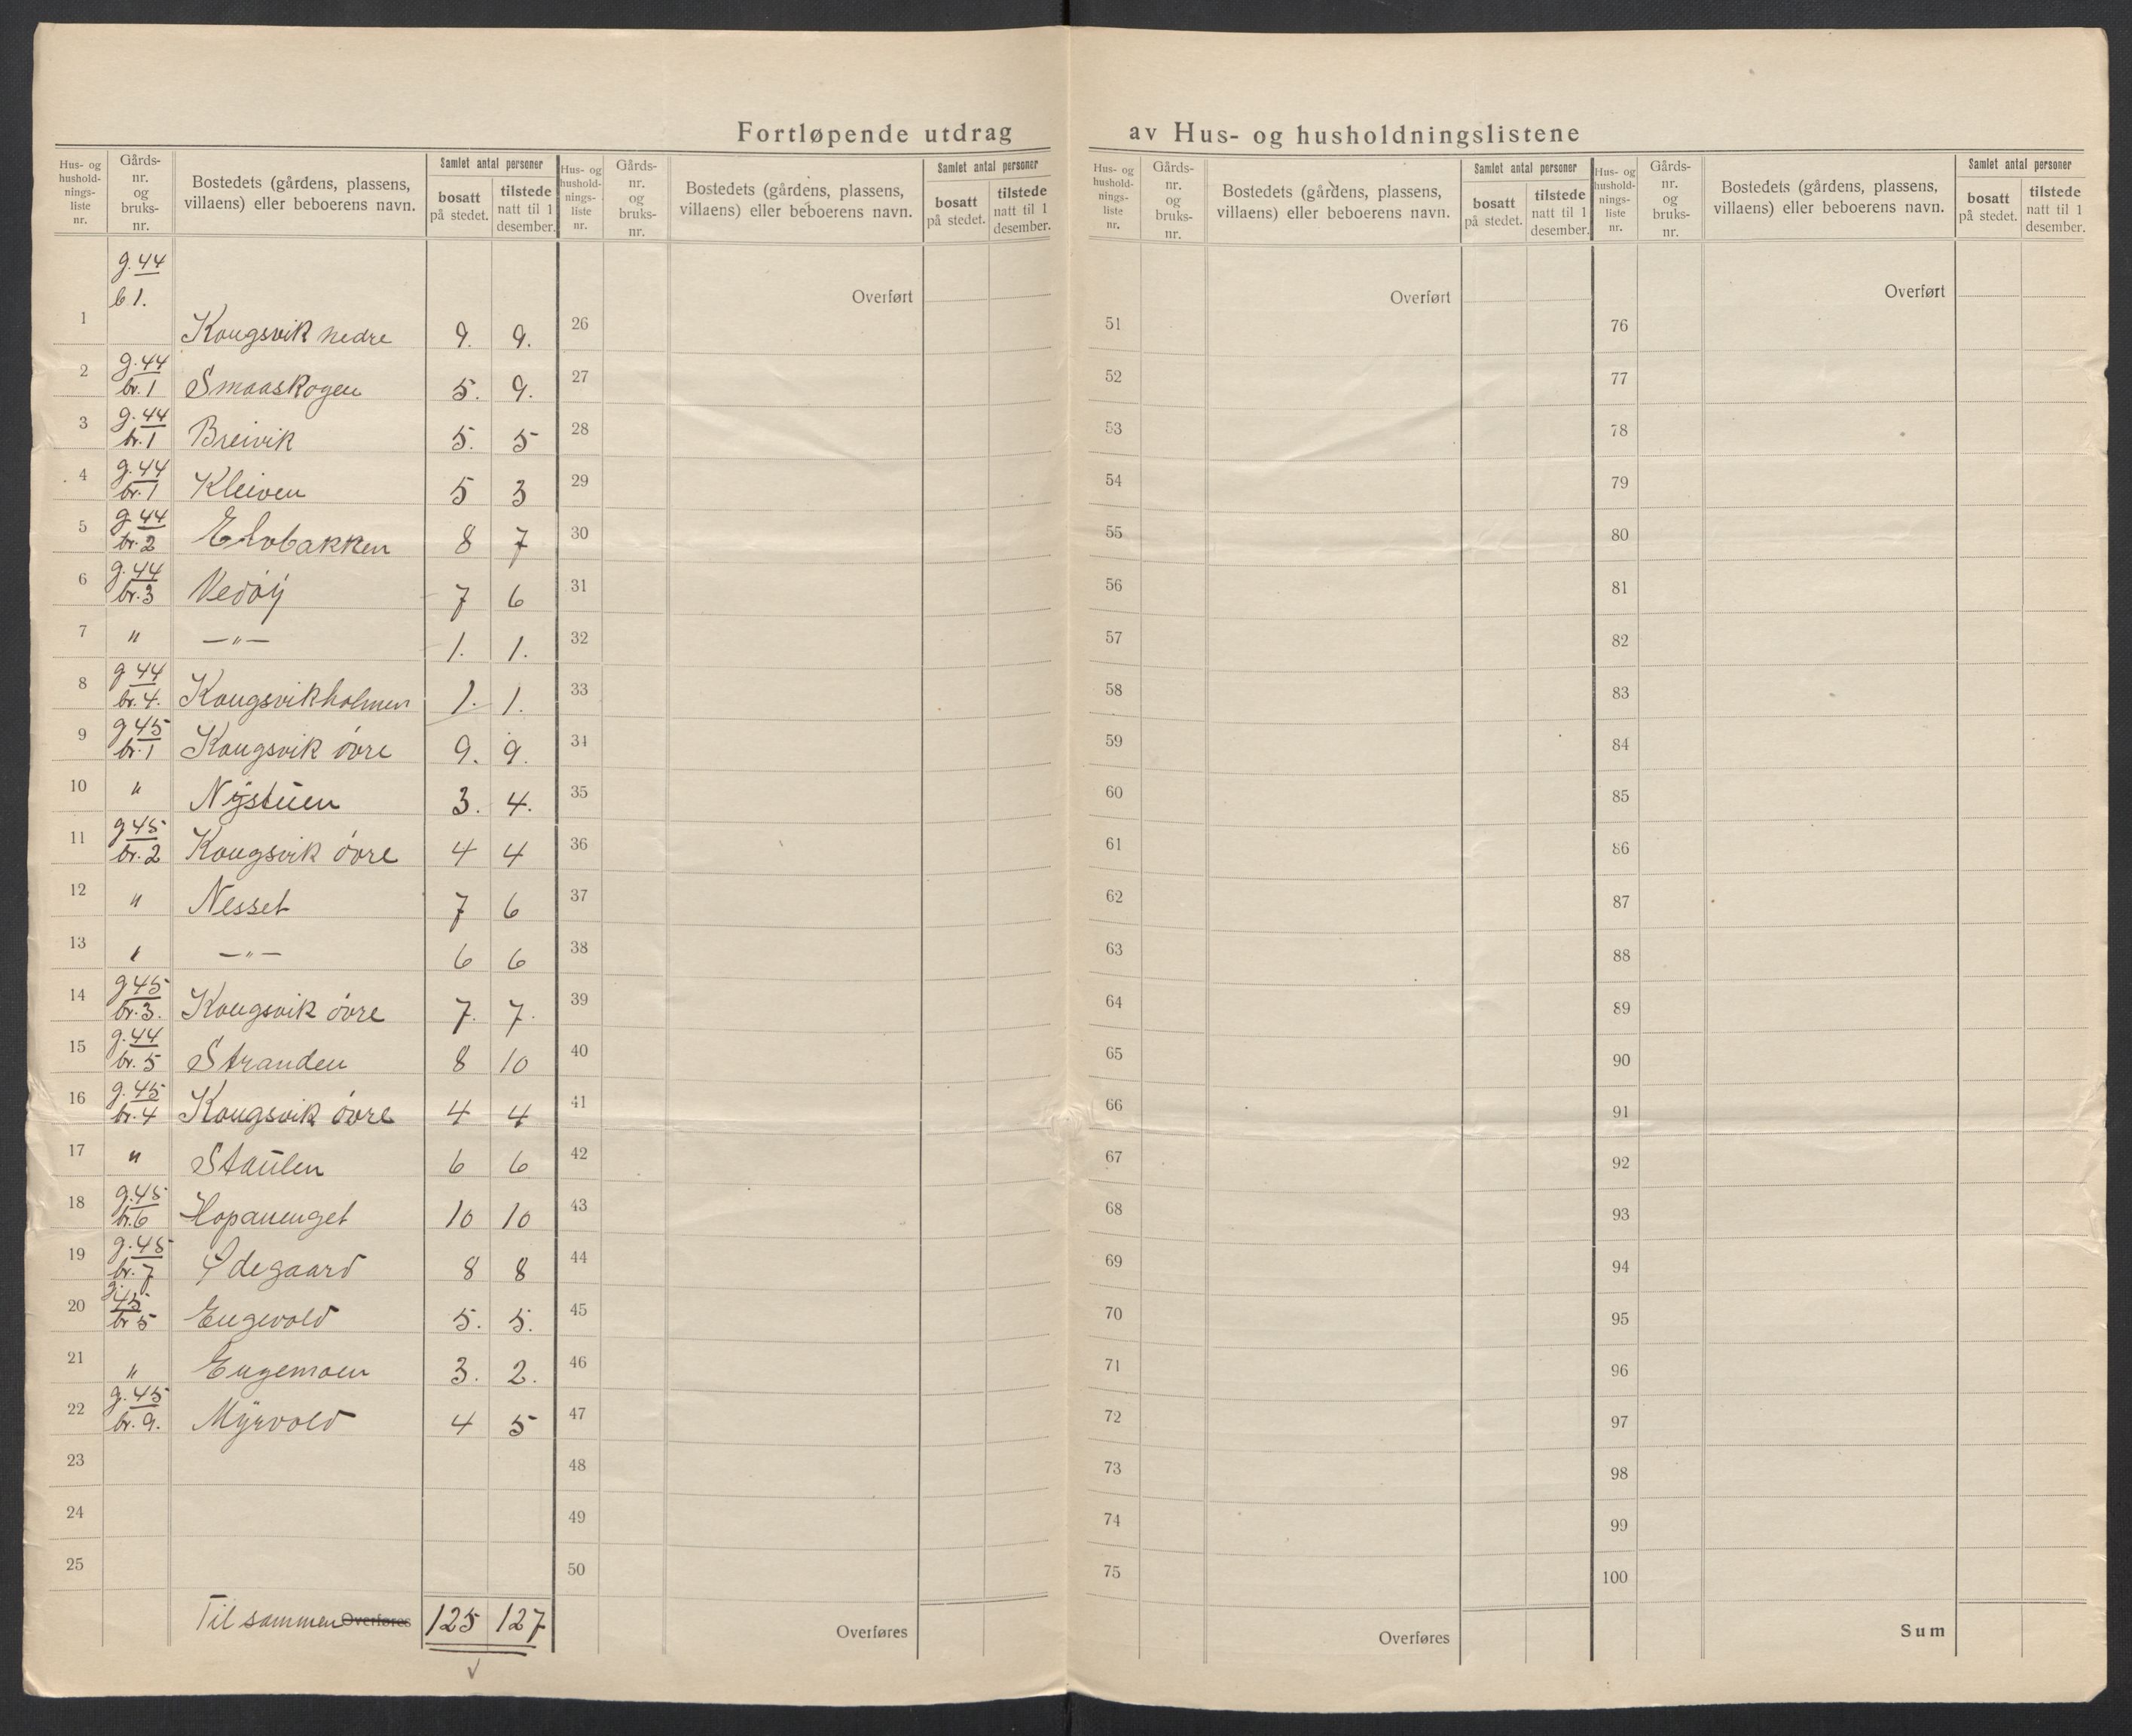 Fortløpende utdrag av Hus- og husholdningslistene
Hus- og husholdnings-liste nr. | Gårds-nr. og bruks-nr. | Bostedets (gårdens, plassens, villaens) eller beboerens navn. | Samlet antal personer | bosatt på stedet. | tilstede natt til 1 desember.
1 | g. 44 b 1. | Kongsvik nedre | 9. | 9.
2 | g. 44 br. 1 | Smaaskogen | 5. | 9.
3 | g. 44 br. 1 | Breivik | 5. | 5
4 | g. 44 br. 1 | Kleiven | 5 | 3
5 | g. 44 br. 2 | Elvbakken | 8 | 7
6 | g. 44 br. 3 | Vedöy | 7 | 6
7 | " | —"— | 1. | 1.
8 | g 44 br. 4. | Kongsvikholmen | 1. | 1.
9 | g 45 br. 1 | Kongsvik övre | 9. | 9.
10 | " | Nystuen | 3. | 4.
11 | g 45 br. 2 | Kongsvik övre | 4 | 4
12 | " | Nesset | 7 | 6
13 | " | —"— | 6 | 6
14 | g 45 br. 3. | Kongsvik övre | 7. | 7.
15 | g. 44 br. 5 | Stranden | 8 | 10
16 | g. 45 br. 4 | Kongsvik övre | 4 | 4
17 | " | Staulen | 6 | 6
18 | g. 45 br. 6 | Hopanenget | 10 | 10
19 | g. 45 br. 7 | Ödegaard | 8 | 8
20 | g. 45 br 5 | Engvold | 5. | 5.
21 | " | Engemoen | 3. | 2.
22 | g. 45 br. 9. | Myrvold | 4 | 5
23
24
25
Tilsammen Overføres | 125 | 127
Hus- og husholdnings-liste nr. | Gårds-nr. og bruks-nr. | Bostedets (gårdens, plassens, villaens) eller beboerens navn. | Samlet antal personer | bosatt på stedet. | tilstede natt til 1 desember.
Overført
26
27
28
29
30
31
32
33
34
35
36
37
38
39
40
41
42
43
44
45
46
47
48
49
50
Overføres
Hus- og husholdnings-liste nr. | Gårds-nr. og bruks-nr. | Bostedets (gårdens, plassens, villaens) eller beboerens navn. | Samlet antal personer | bosatt på stedet. | tilstede natt til 1 desember.
Overført
51
52
53
54
55
56
57
58
59
60
61
62
63
64
65
66
67
68
69
70
71
72
73
74
75
Overføres
Hus- og husholdnings-liste nr. | Gårds-nr. og bruks-nr. | Bostedets (gårdens, plassens, villaens) eller beboerens navn. | Samlet antal personer | bosatt på stedet. | tilstede natt til 1 desember.
Overført
76
77
78
79
80
81
82
83
84
85
86
87
88
89
90
91
92
93
94
95
96
97
98
99
100
Sum